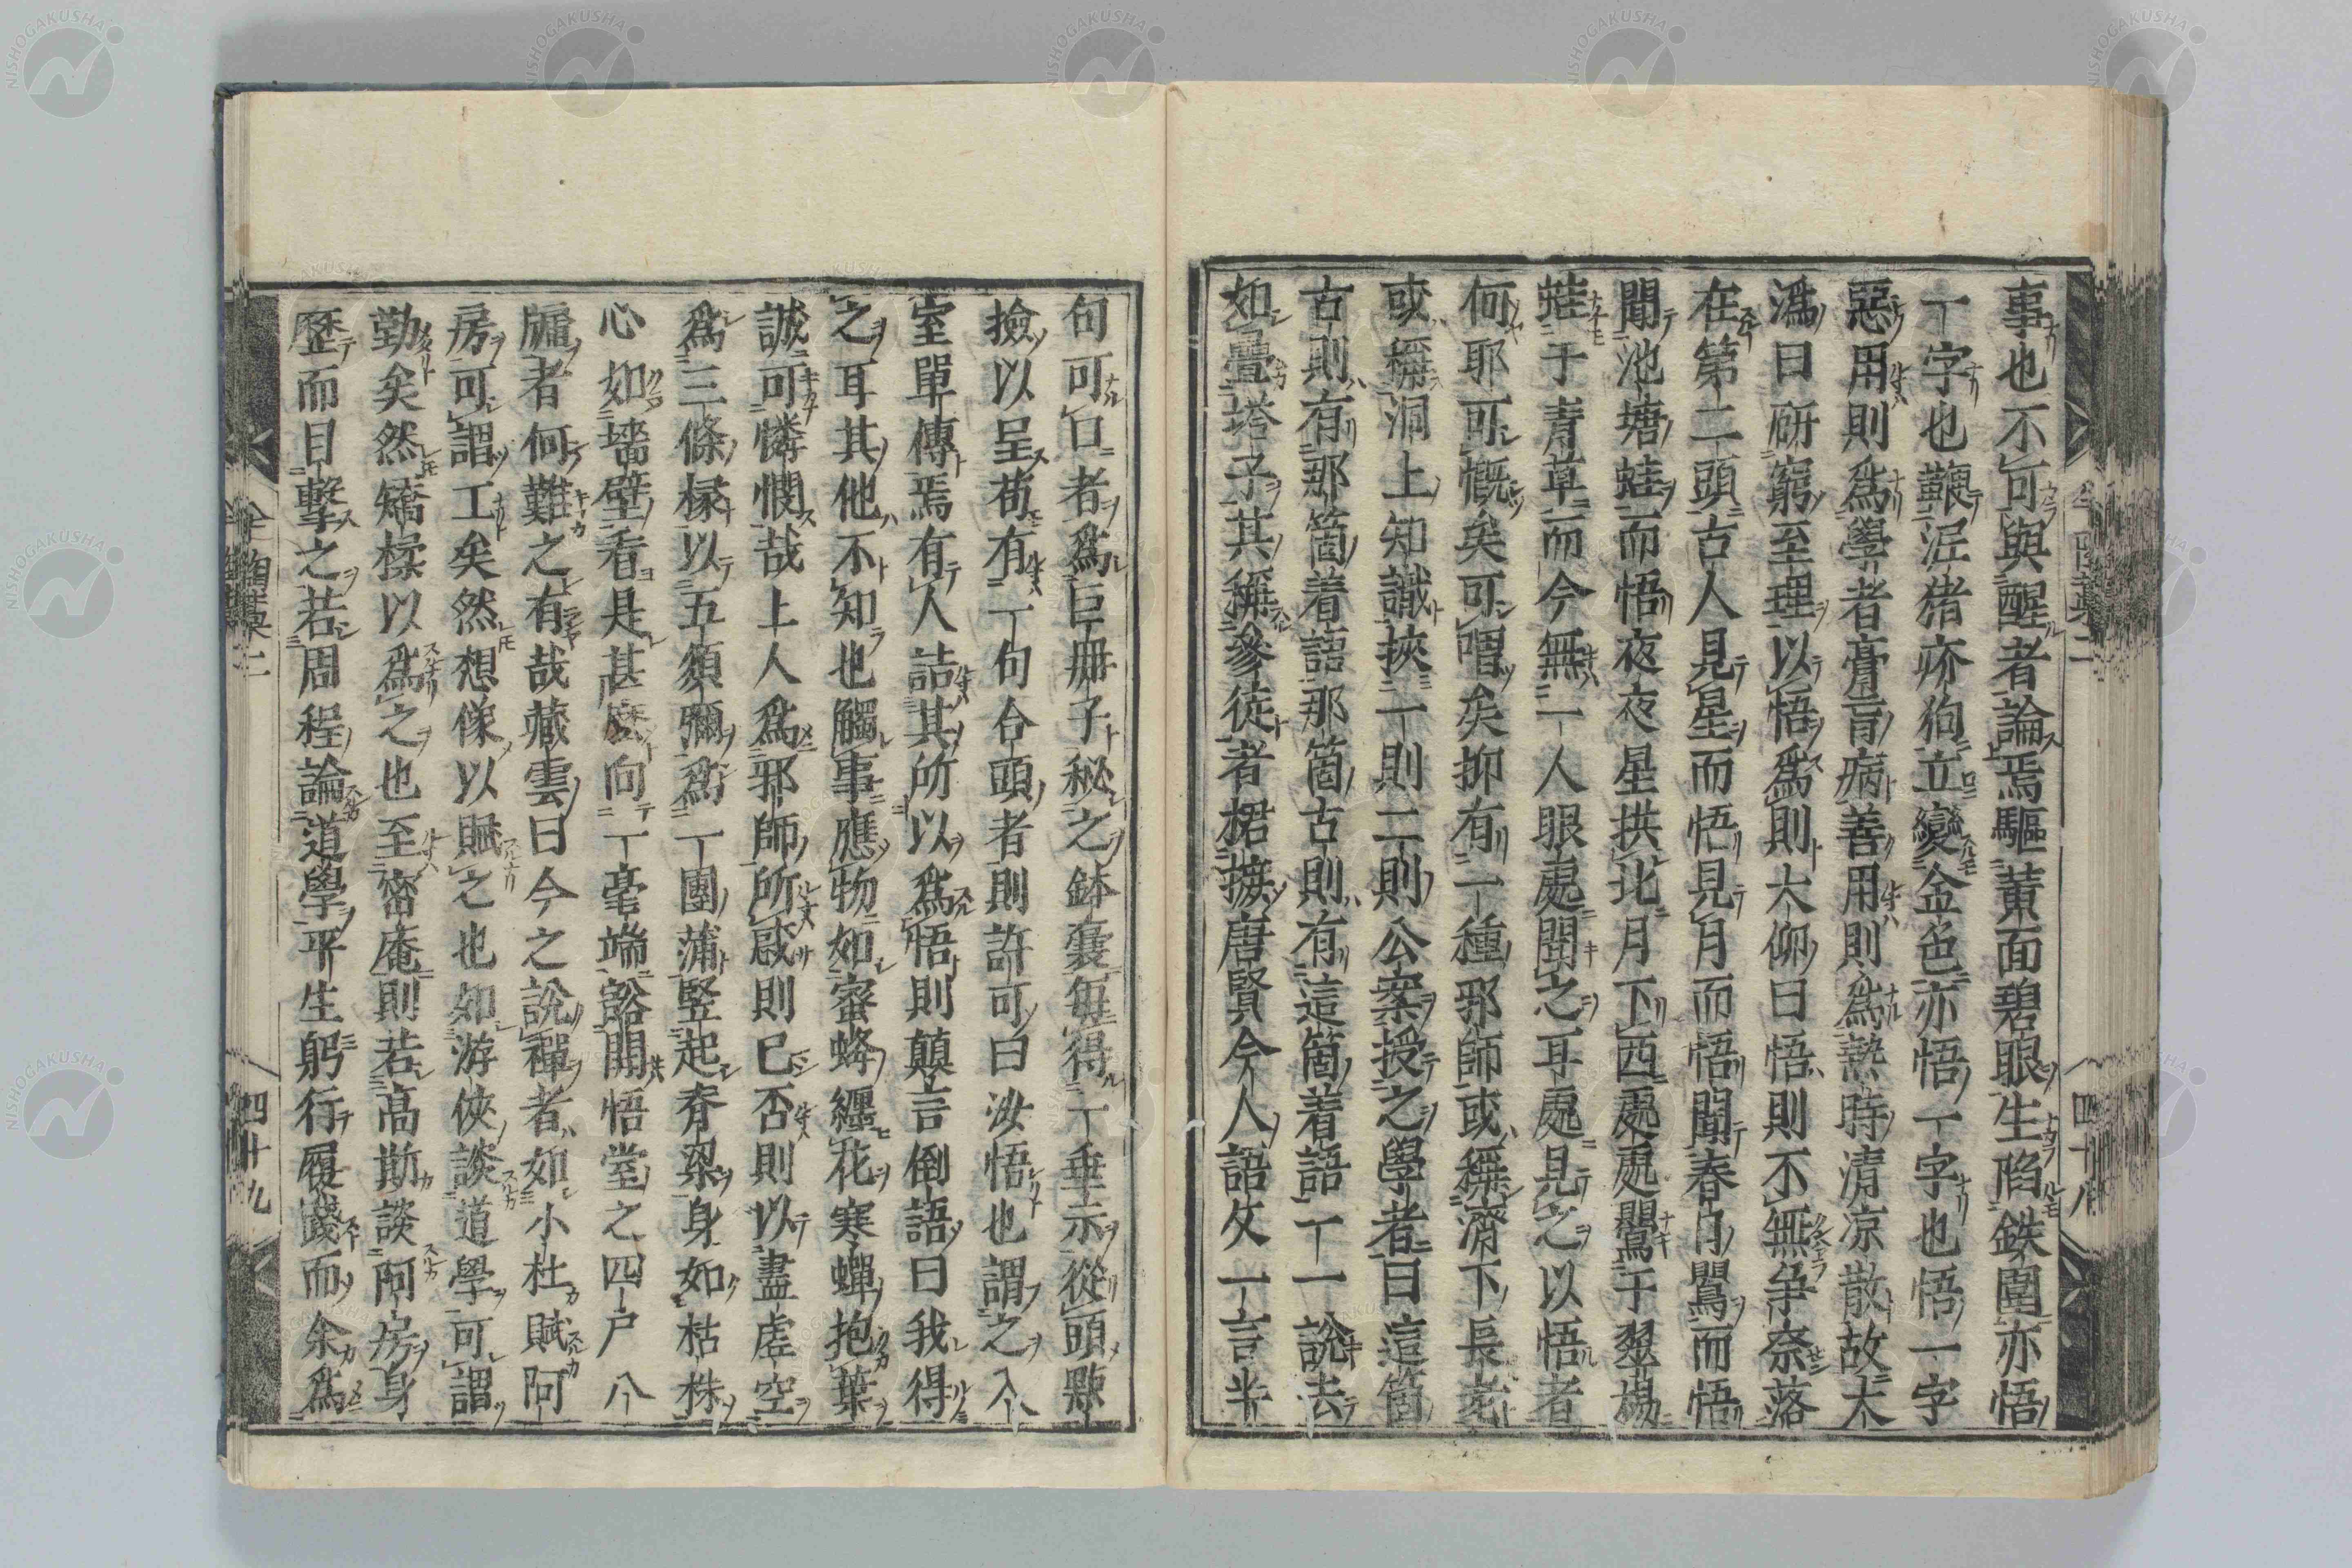 事也不可與醒者論焉驅黄面碧眼生陷鉄圍亦悟
一字也輥泥猪疥狗立變金色亦悟一字也悟一字
惡用則爲學者膏肓病善用則爲熱時清凉散故大
潙曰研窮至理以悟爲則大仰曰悟則不無爭奈落
在第二頭古人見星而悟見月而悟聞春自鸎而悟
聞池塘蛙而悟夜夜星拱北月下西處處鸎于翠楊
蛙于青草而今無一人眼處聞之耳處見之以悟者
何耶可慨矣可唱矣抑有一種邪師或稱濟下長老
或稱洞上知識挾一則二則公案授之學者曰這箇
古則有那箇着語那箇古則有這箇着語一一說去
如疊塔子其稱參徒者捃摭唐賢今人語攵一言半
句可口者爲巨冊子秘之鉢囊毎得一垂示從頭㸃
撿以呈苟有一句合頭者則許可曰汝悟也謂之入
室單傳焉有人詰其所以爲悟則顛言倒語曰我得
之耳其他不知也觸事應物如蜜蜂纏花寒蟬抱葉
誠可憐憫哉上人爲邪師所啟則已否則以盡虛空
爲三條椽以五須彌爲一團蒲竪起脊梁身如枯株
心如墻壁看是甚麽向一毫端豁開悟堂之四戸八
牖者何難之有哉藏雲曰今之說禪者如小杜賦阿
房可謂工矣然想像以賦之也如游俠談道學可謂
勤矣然矯揉以爲之也至窗庵則若髙斯談阿房身
歷而目擊之若周程論道學平生躬行履踐而余爲
四十八
四十九